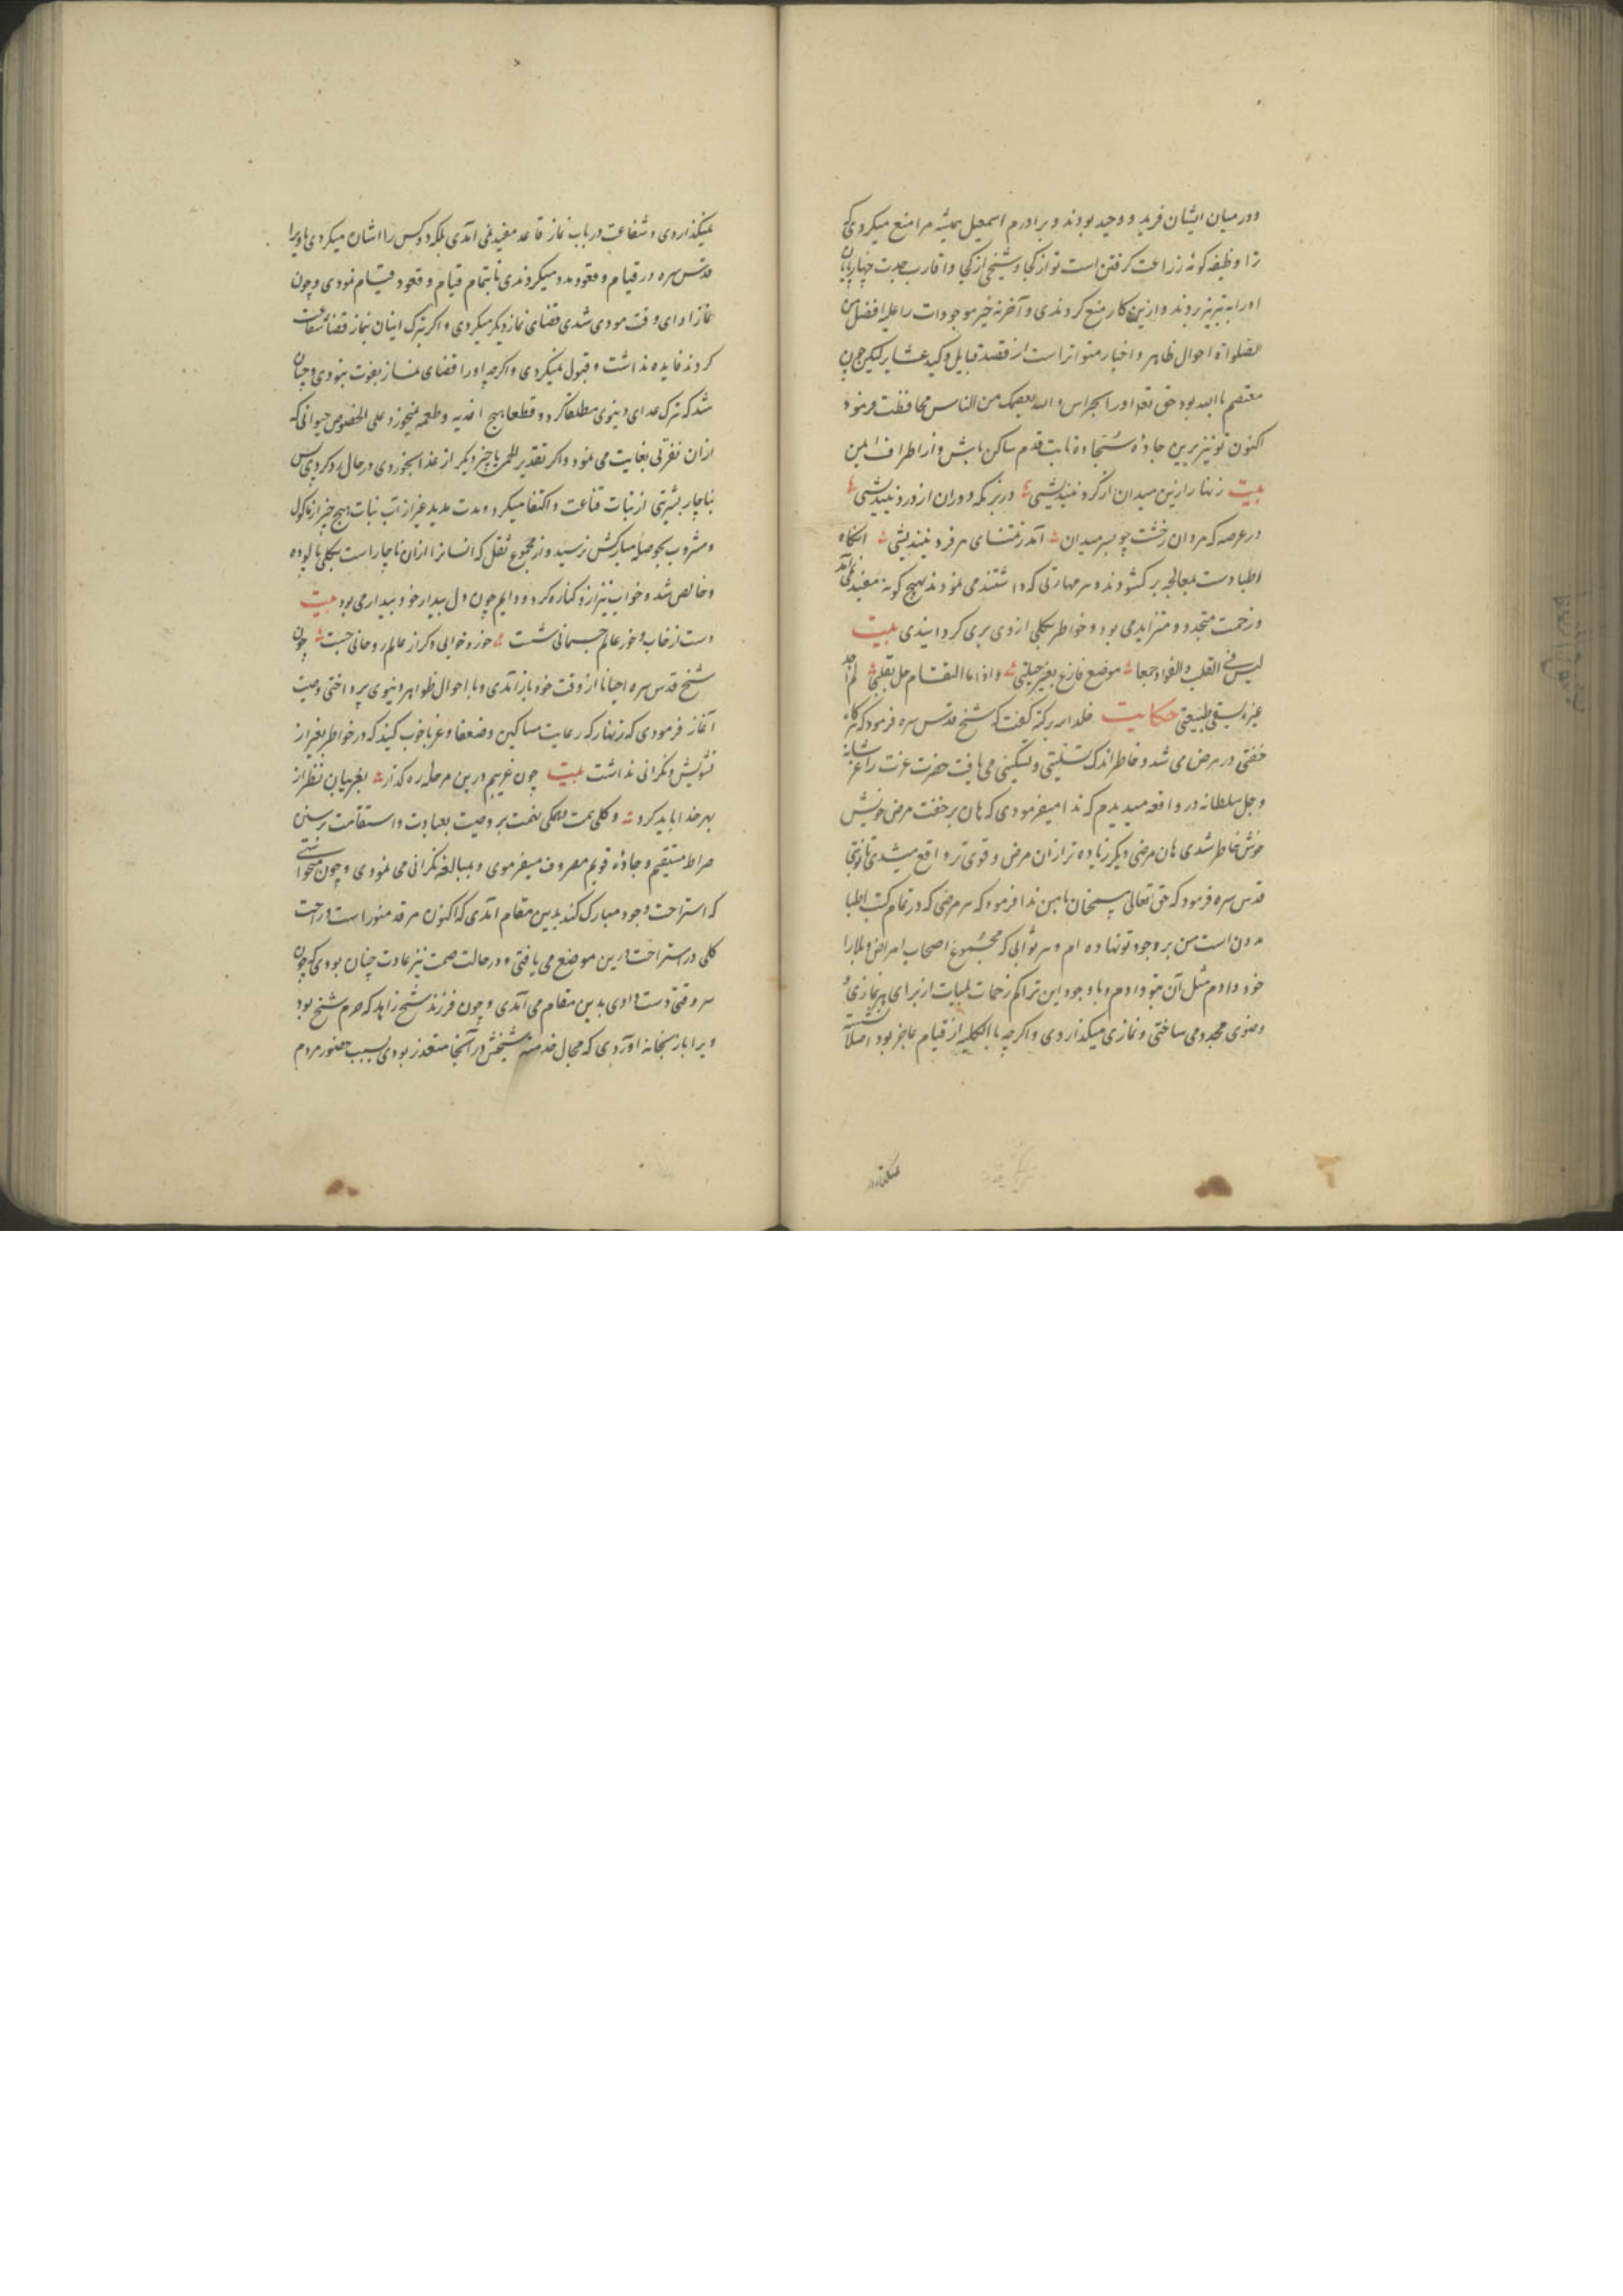 ودر میان ایشان فرید و وحید بودند و برادرم اسمعیل همیشه مرا منع میکردی که
ترا وظیفه کونه زراعت کرفتن است تو از کجا و شیخی از کجا و اقارب جدت
اورا به تبریز بردند و ازین کار منع کردندی و آخر نه خیر موجودات را علیه افضل
الصلواة احوال ظاهر و اخبار متواتر است از قصد قبایل و کید عشایر لیکن چون
معتصم باالله بود حق تعالی اورا بحراس والله یعصمک من الناس محافظت فرمود
اکنون تو نیز برین جاده سجاده ثابت قدم ساکن باش و از اطراف ایمن
بیت زنهار ازین میدان از کرد نیندیشی در بزمکه دوران از درد نیندیشی
در عرصه که مردان رخشت چو بمیدان آندر تنشای هر فرد نیندیشی انکاه
اطبا دست بمعالجه برکشودند و هر مهارتی که داشتند می نمودند بهیچ کونه مفید نمی آمد
و زحمت متجدد و متزاید می بود و خواطر بکلی از وی بری کردانیدی بیت
لیس فی القلب والفواد جمعا موضع فارغ بغیر حبیبی و اذا ما السقام حل بقلبی لم اجد
غیره لسقمی طبیبی حکایت خلدا بر برکته کفت که شیخ قدس سره فرمود که هرکاه
خفتی در مرض می شد و خاطر اندک تسلیتی و تسکینی می یافت حضرت عزت را عز شانه
و جل سلطانه در واقعه میدیدم که ندا میفرمودی که هان بر خفت مرض خویش
خوش خاطر شدی هان مرضی دیکر زیاده تر از ان مرض و قوی تر واقع میشدی تا نوبتی
قدس سره فرمود که حق تعالی سبحان بمن ندا فرمود که هر مرضی که در تمام کتب اطبا
مدون است من بر وجود تو نهاده ام و هر ثوابی که مجموع اصحاب امراض و بلا را
خود دادم مثل آن بتو دادم و با وجود این تراکم زحمات بلیات از برای هر نمازی
وضوی مجدد می ساختی و نمازی میکذاردی و اکرچه باالکلیه از قیام عاجز بود اصلا نشسته
نمیکذاردی و شفاعت در باب نماز قاعد مفید نمی آمدی بلکه دو کس را اشان میکردی تا ویرا
قدس سره در قیام و قعود مدد میکردندی تا بتمام قیام و قعود قیام نمودی و چون
نماز ادای وقت مودی شدی قضای نماز دیکر میکردی و اکر بترک اینان نماز قضا شفاعت
کردند فایده نداشت و قبول نمیکردی و اکرچه اورا قضای نماز بفوت نبودی و چنان
شد که ترک غذای دنیوی مطلقا کرد و قطعا هیچ اغذیه و طعمه نمیخورد علی الخصوص حیوانی که
از ان نفرتی بغایت می نمود و اکر تقدیر للحمی یا چیز دیکر از غذا بخوردی در حال رد کردی پس
بناچار بشربتی از نبات قناعت و اکتفا میکرد و مدت مدید غیر از آب نبات هیچ چیز از ماکول
و مشروب بحوصله مبارکش نرسید و از مجموع ثقل که انسانرا از ان ناچار است بکلی پالوده
و خالص شد و خواب نیز ازو کناره کرد و دایم چون دل بیدار خود بیدار می بود بیت
دست از خاب و خور عالم جسمانی شست خور و خوابی دکر از عالم روحانی جست چون
شیخ قدس سره احیانا از وقت خود باز آمدی و با احوال ظواهر دنیوی پرداختی وصیت
آغاز فرمودی که زنهار که رعایت مساکین و ضعفا و غربا خوب کنید که در خواطر بغیر از
تشویش و نکرانی نداشت بیت چون غریبم درین مرحله ره کذر بغریبان نظر از
بهر خدا باید کرد و کلی همت و همکی نهمت بر وصیت بعبادت و استقامت بر سنن
صراط مستقیم و جاده قویم مصروف میفرموی و بمبالغه نکرانی می نمودی و چون میخواستی
که استراحت وجود مبارک کند بدین مقام آمدی که اکنون مرقد منور است و راحت
کلی در استراحت درین موضع می یافتی و در حالت صحت نیز عادت چنان بودی که چون
سر وقتی دست دادی بدین مقام می آمدی و چون فرزند شیخ زاهد که حرم شیخ بود
ویرا باز بخانه آوردی که مجال خدمت شیخش در آنجا متعذر بودی بسبب حضور مردم